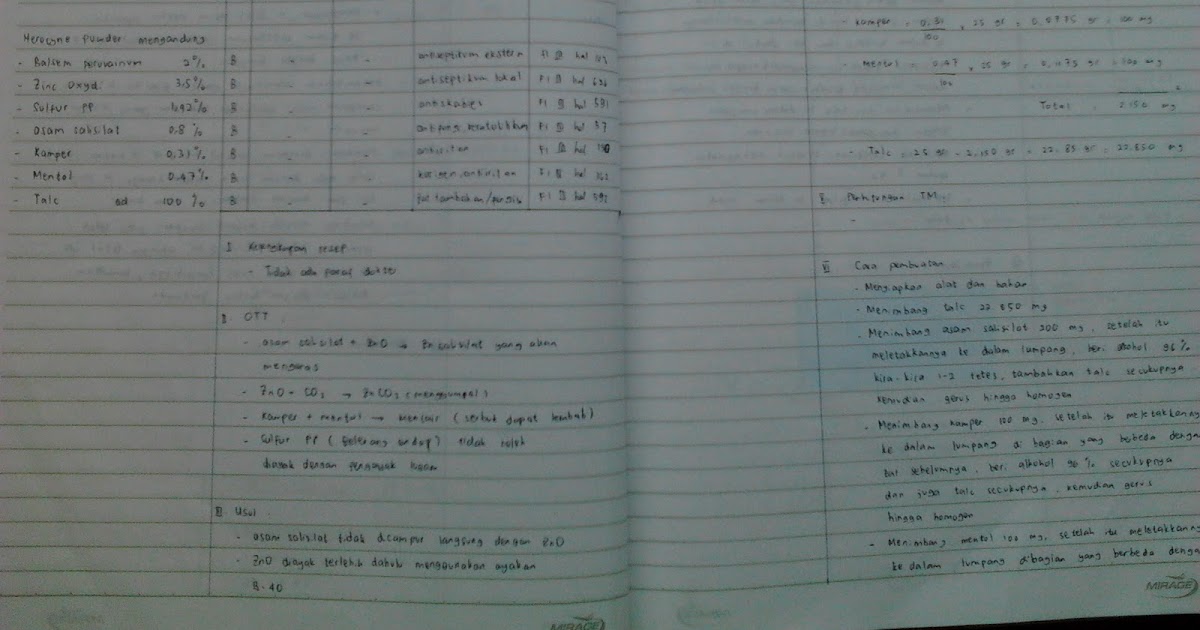 Herocyne powder mengandung
- Balsem peruvianum 2% B - - antiseptikum ekstern FI III hal
- Zinc oxyd. 3,5% B - - antiseptikum lokal FI III hal 636
- Sulfur PP 1,42% B - - antiskabies FI III hal 591
- Asam salisilat 0,8 % B - - antifungi, keratolitikum FI III hal 57
- Kamper 0,31 % B - - antiiritan FI III hal
- Mentol 0,47% B - - korigen, antiiritan FI III hal 362
- Talc ad 100 % B - - zat tambahan/pengisi FI III hal 591
I Kelengkapan resep
- Tidak ada paraf dokter
II OTT
- asam salisilat + ZnO → Zn salisilat yang akan
mengeras
- ZnO + CO2 → ZnCO3 (menggumpal)
- Kamper + mentol → mencair (serbuk dapat lembab)
- Sulfur PP (belerang endap) tidak boleh
diayak dengan pengayak logam
III Usul
- asam salisilat tidak dicampur langsung dengan ZnO
- ZnO diayak terlebih dahulu menggunakan ayakan
B-40
MIRAGE
- Kamper = 0,31 x 25 gr = 0,0775 gr = 100 mg
100
- Mentol = 0,47 x 25 gr = 0,1175 gr = 100 mg
100
Total = 2.150 mg
- Talc = 25 gr - 2,150 gr = 22,85 gr = 22.850 mg
Perhitungan TM
-
VI Cara pembuatan
- Menyiapkan alat dan bahan
- Menimbang talc 22.850 mg
- Menimbang asam salisilat 200 mg, setelah itu
meletakkannya ke dalam lumpang, beri alkohol 96%
kira-kira 1-2 tetes, tambahkan talc secukupnya
kemudian gerus hingga homogen
- Menimbang kamper 100 mg, setelah itu meletakkannya
ke dalam lumpang di bagian yang berbeda dengan
zat sebelumnya, beri alkohol 96% secukupnya
dan juga talc secukupnya, kemudian gerus
hingga homogen
- Menimbang mentol 100 mg, setelah itu meletakkannya
ke dalam lumpang dibagian yang berbeda dengan
MIRAGE